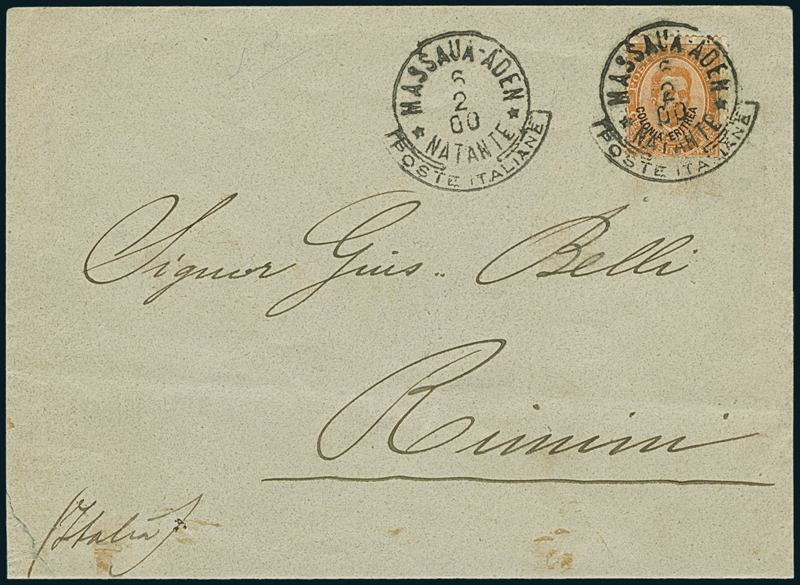 MASSAUA-ADEN
6
2
00
NATANTE
POSTE ITALIANE
MASSAUA-ADEN
6
2
00
NATANTE
POSTE ITALIANE
COLONIA ERITREA
Signor Gius.. Belli
Rimini
(Italia)